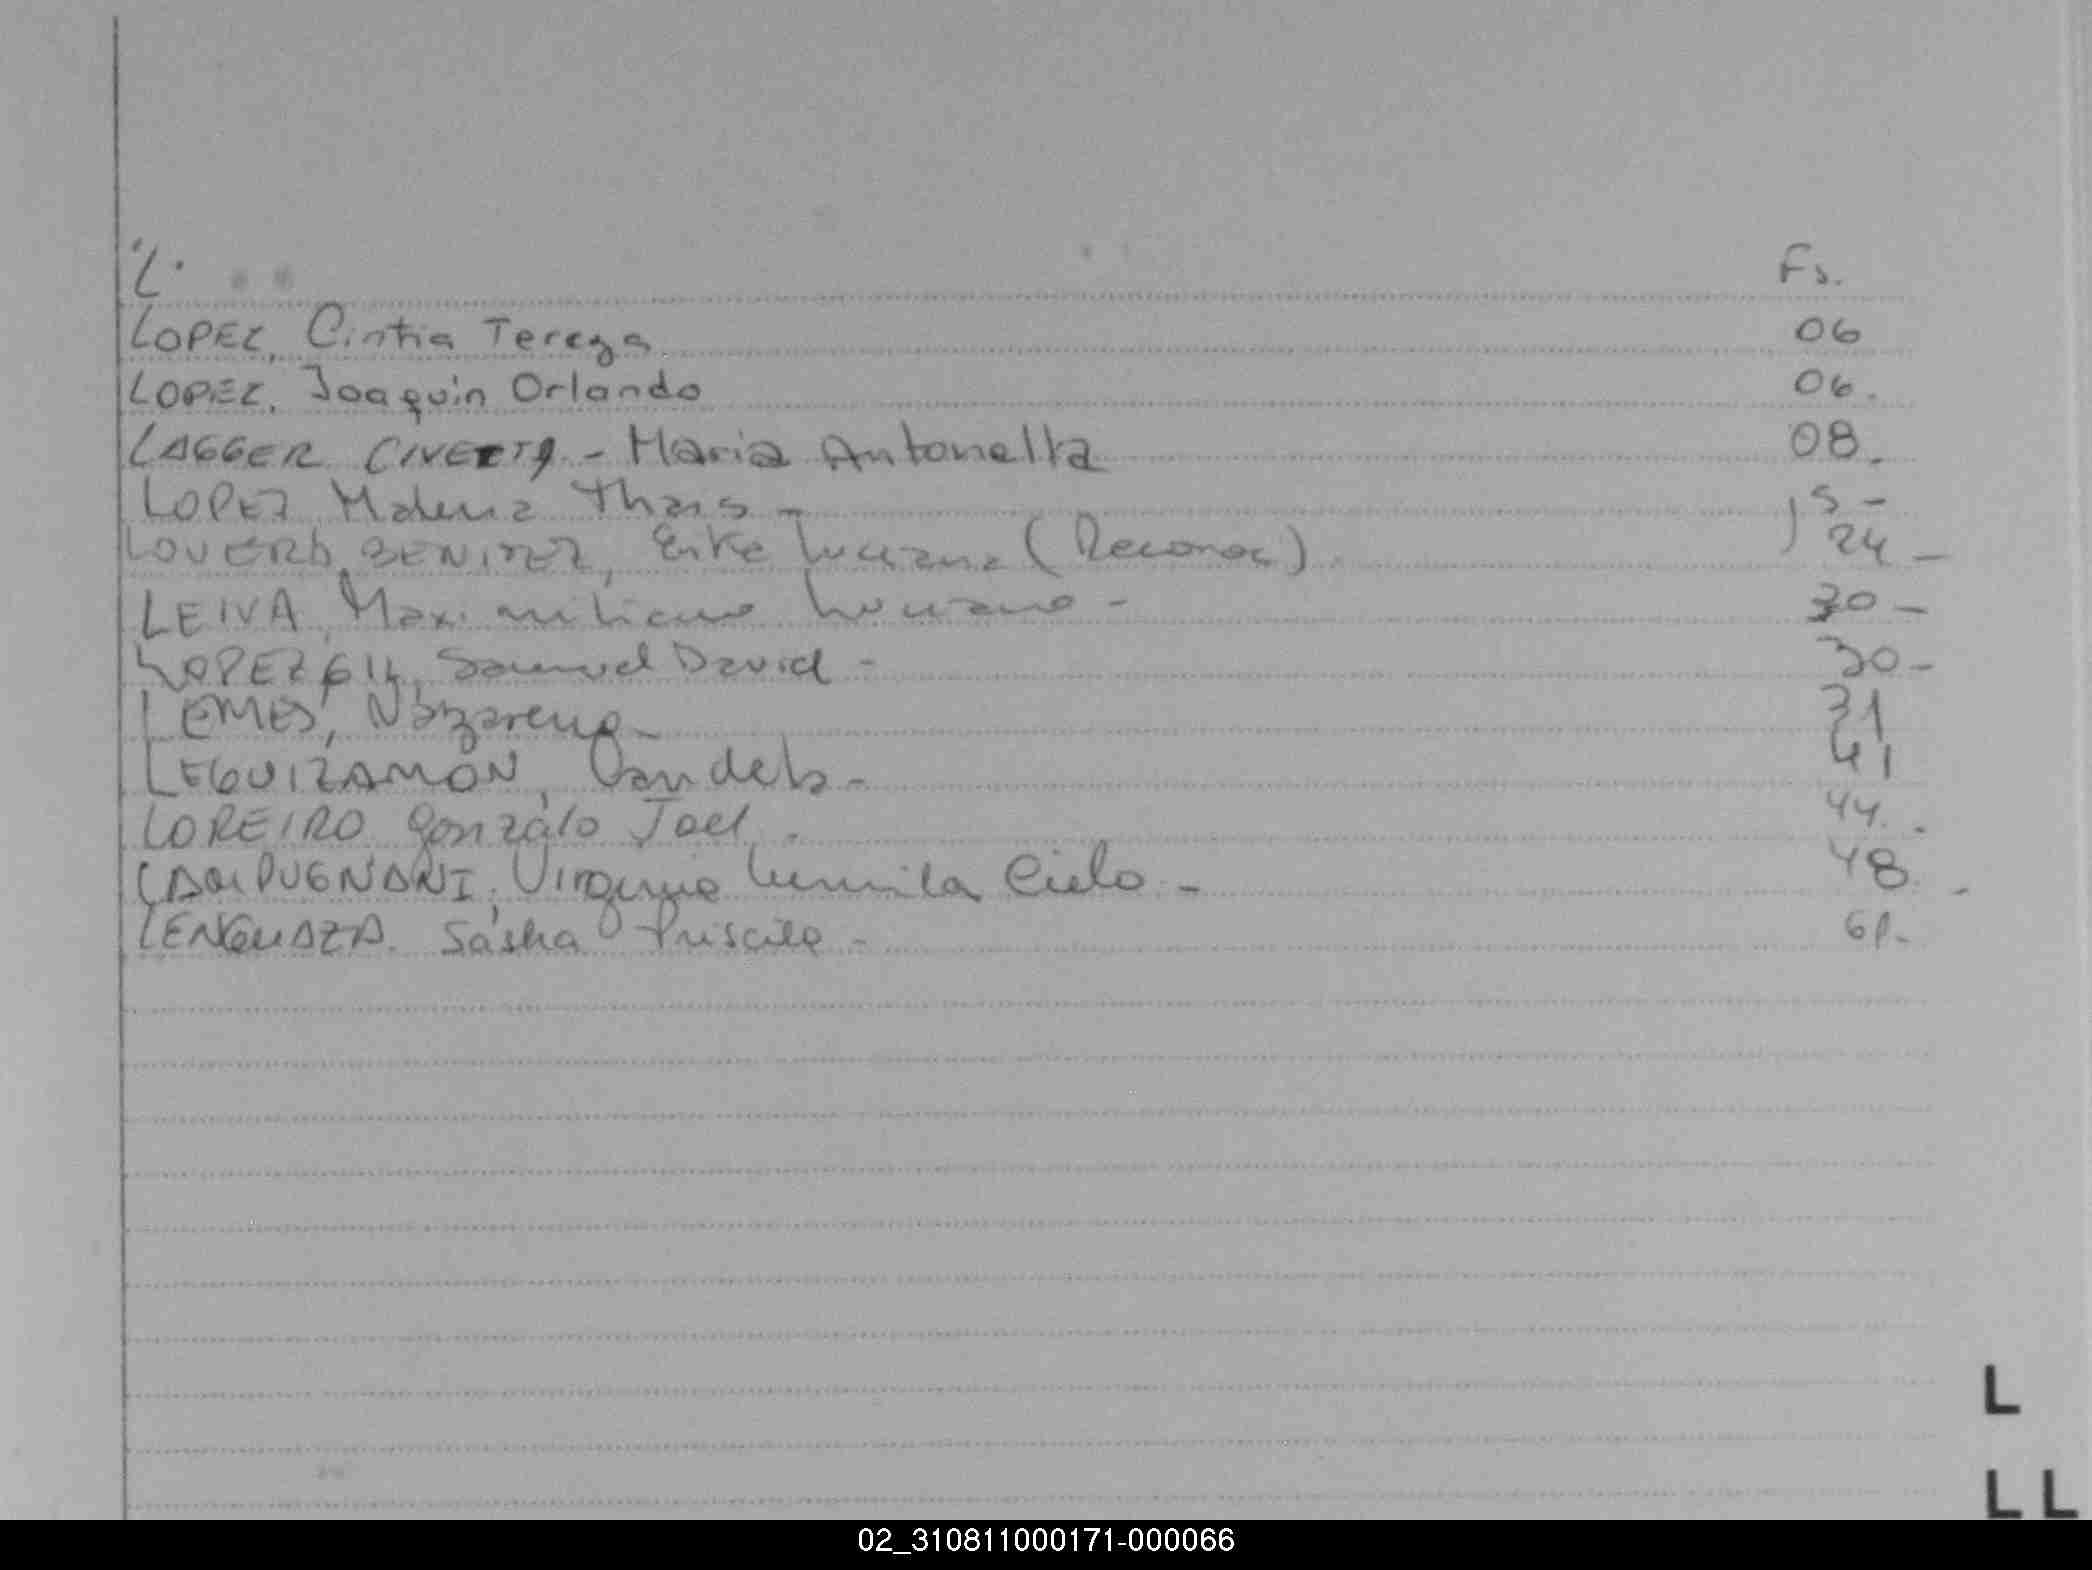 "L" Fs.
LOPEZ, Cintia Tereza 06
LOPEZ, Joaquín Orlando 06.
LAGGER CIVETTA - Maria Antonella 08.
LOPEZ Malena Thais - 15 -
BENITEZ, Luciana (Reconoc). 24 -
LEIVA, Maximiliano Luciano - 30 -
LOPEZ GIL, Samuel David - 30 -
LEMES, Nazareno - 31
LEGUIZAMON, Candela - 41
LOREIRO Gonzalo Joel. 44.
LAMPUGNANI, Virginia Lumila Cielo - 48. -
LENGUAZA. Sasha Priscila - 61.-
L
LL
02_310811000171-000066